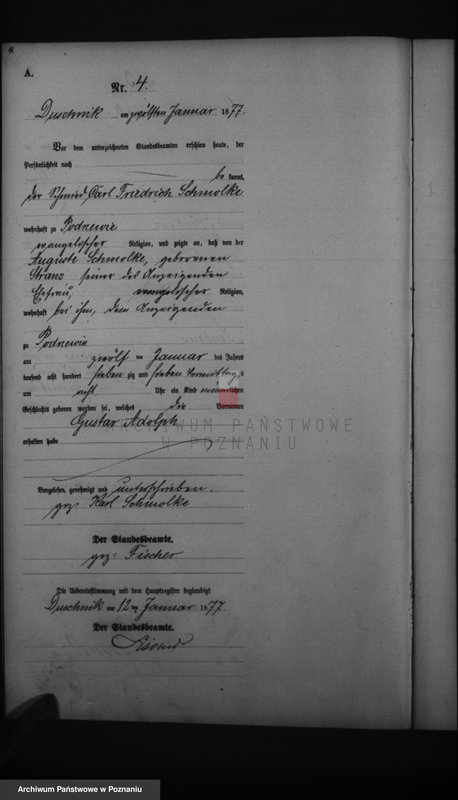 4.
A.
Nr. 4.
Duschnik am zwölften Januar 1877.
Vor dem unterzeichneten Standesbeamten erschien heute, der
Persönlichkeit nach
be kannt,
der Schmied Carl Friedrich Schmolke
wohnhaft zu Podrewie
evangelischer Religion, und zeigte an, daß von der
Auguste Schmolke, geborenen
Stranz, seiner des Anzeigenden
Ehefrau, evangelischer Religion,
wohnhaft bei ihm, dem Anzeigenden
zu Podrewie
am zwölf ten Januar des Jahres
tausend acht hundert sieben zig und sieben Vormittags
um acht Uhr ein Kind männlichen
Geschlechts geboren worden sei, welches die Vornamen
Gustav Adolph
erhalten habe
ARCHIWUM PAŃSTWOWE
W POZNANIU
Vorgelesen, genehmigt und unterschrieben.
gez: Karl Schmolke
Der Standesbeamte.
gez: Fischer
Die Uebereinstimmung mit dem Hauptregister beglaubigt
Duschnik am 12 ten Januar 1877.
Der Standesbeamte.
Archiwum Państwowe w Poznaniu